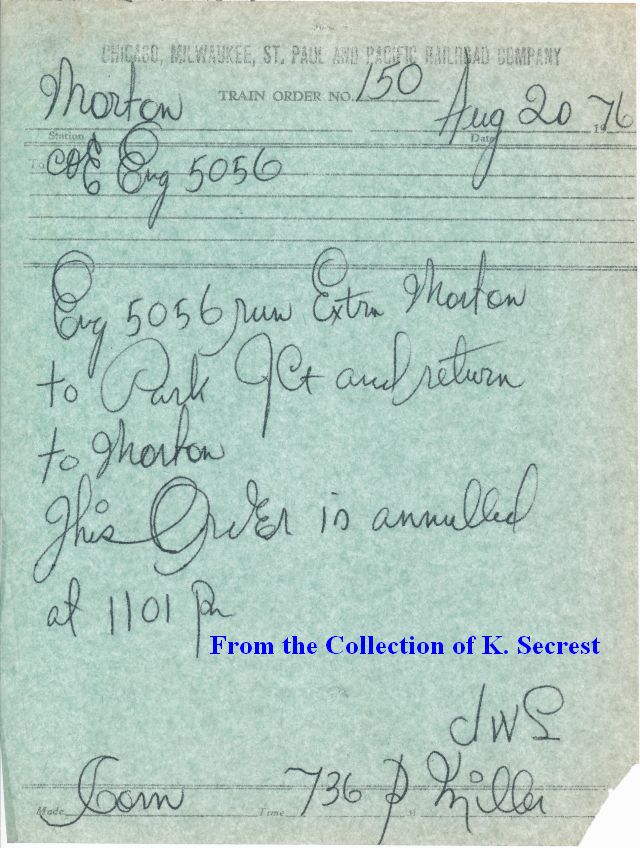 CHICAGO, MILWAUKEE, ST. PAUL AND PACIFIC RAILROAD COMPANY
TRAIN ORDER NO. 150
Morton Aug 20 1976
Station Date
To C&E Eng 5056
Eng 5056 run Extra Morton
to Park Jct and return
to Morton
This Order is annulled
at 1101 pm
From the Collection of K. Secrest
JWS
Made Com Time 736 P Miller